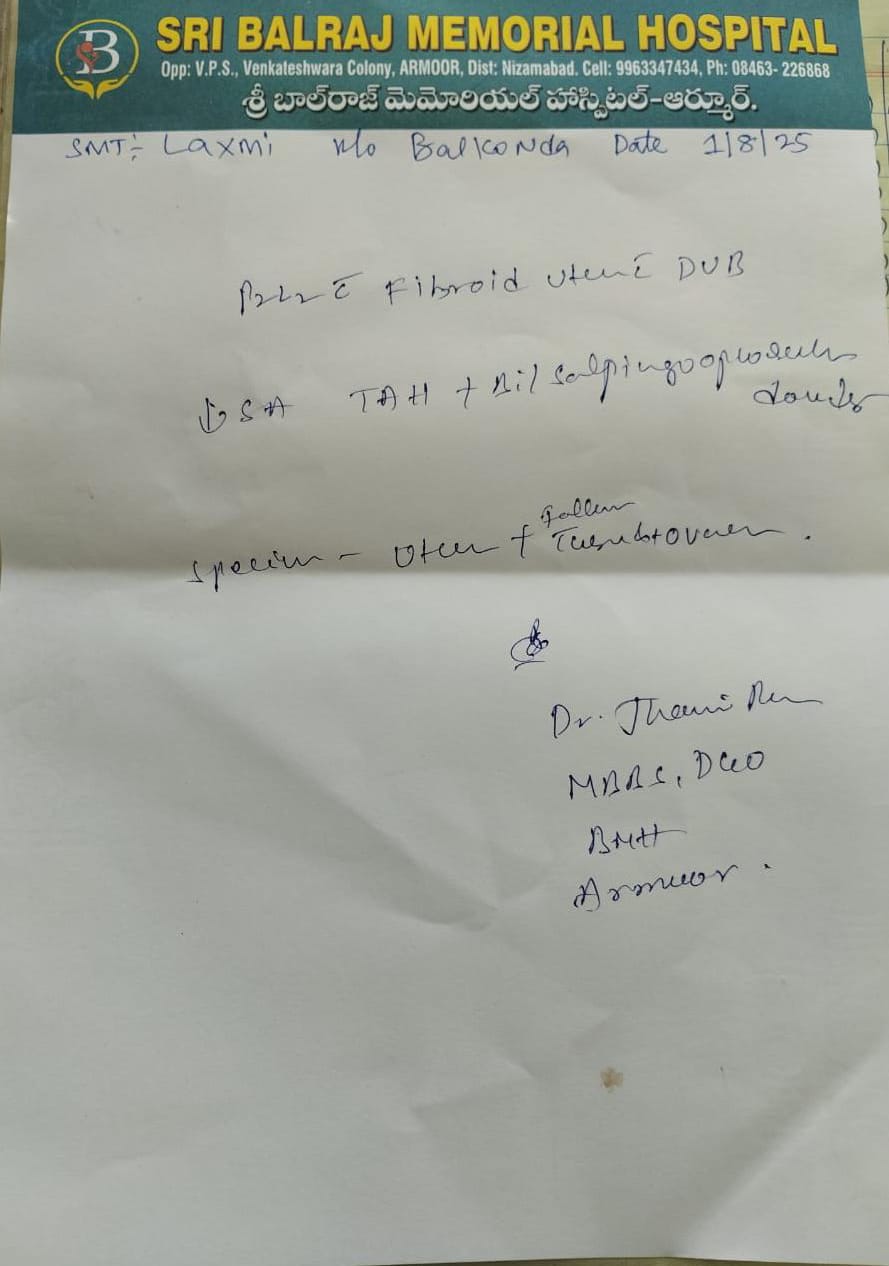 B
SRI BALRAJ MEMORIAL HOSPITAL
Opp: V.P.S., Venkateshwara Colony, ARMOOR, Dist: Nizamabad. Cell: 9963347434, Ph: 08463- 226868
శ్రీ బాల్‌రాజ్ మెమోరియల్ హాస్పిటల్-ఆర్మూర్.
SMT:- Laxmi R/o Balkonda Date 1/8/25
P2L2 c̄ Fibroid uteru c̄ DUB
↓ SA TAH + Bil Salpingoophorecto
Specim - Uteru + Tubes + Ovaries.
Dr. Jhansi
MBBS, DGO
BMH
Armoor.